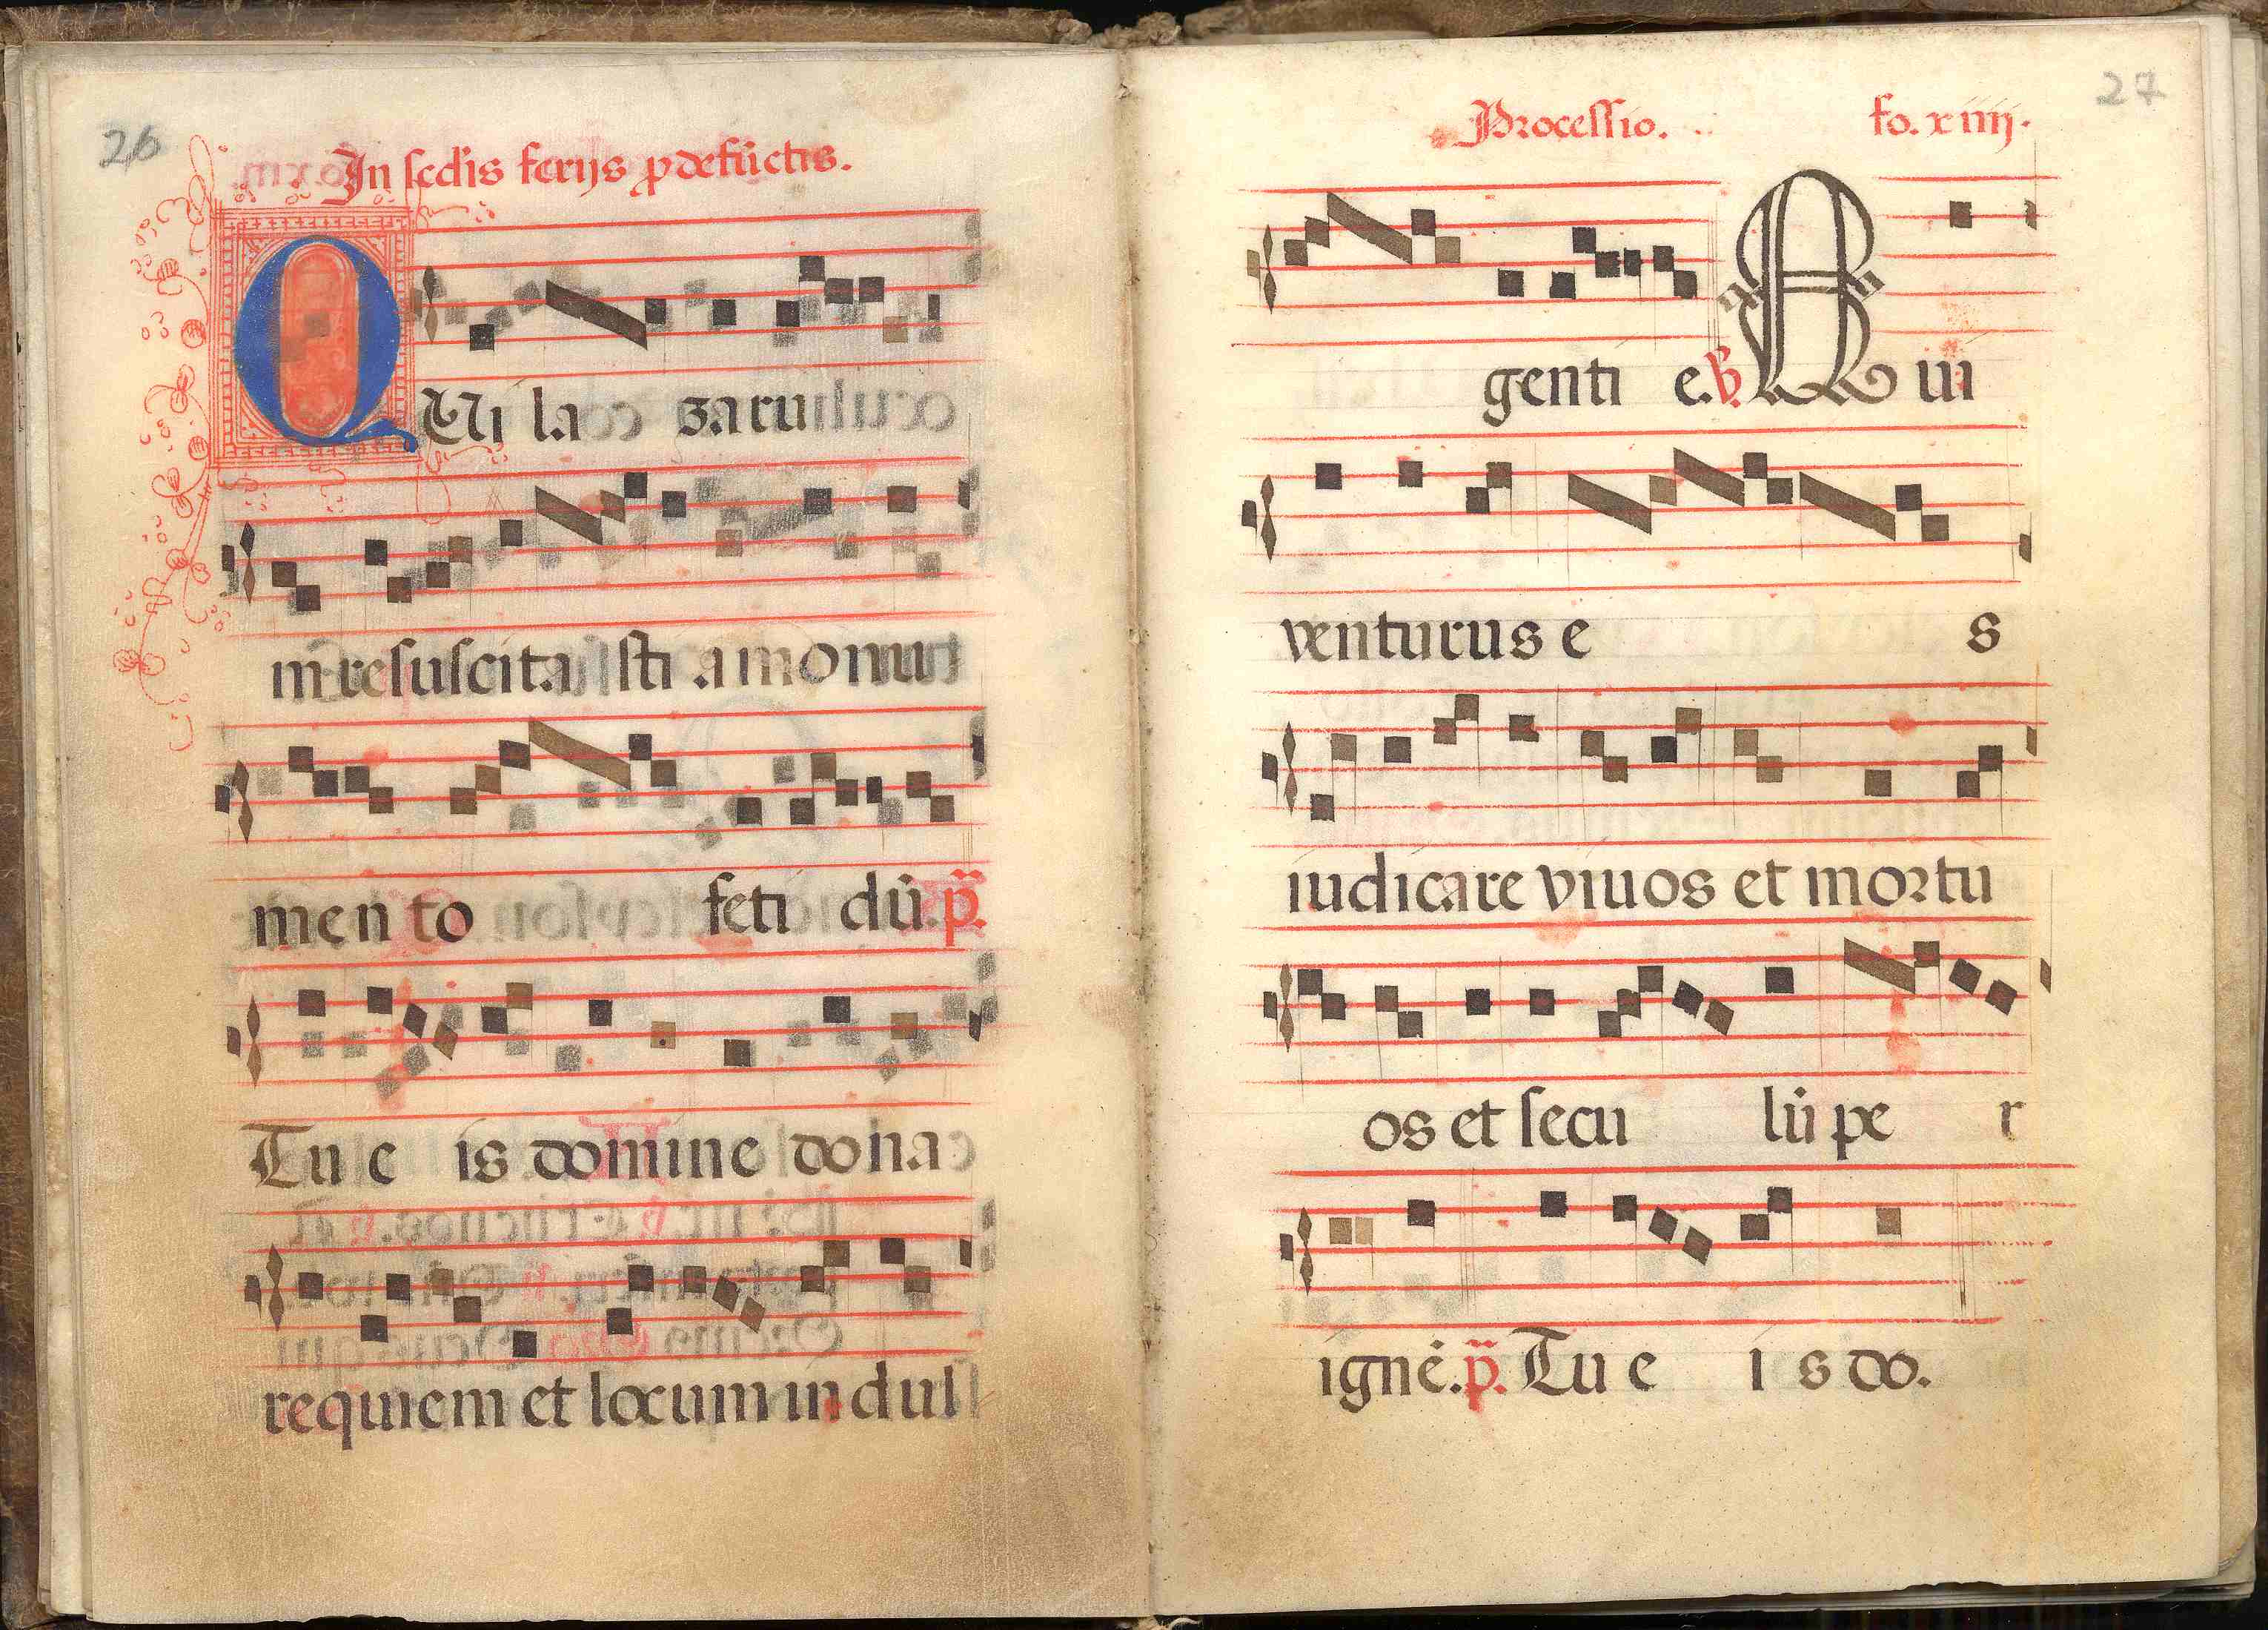 26
In scd̄is ferijs ꝓ defūctis.
QUi la zaru
m resuscita sti a monu
mento feti dū. p̄.
Tu e is domine dona
requiem et locum in dul
27
Processio. fo. xiiij.
genti e. ℣. Qui
venturus e s
iudicare viuos et mortu
os et secu lū pe r
ignē. p̄. Tu e i s do.